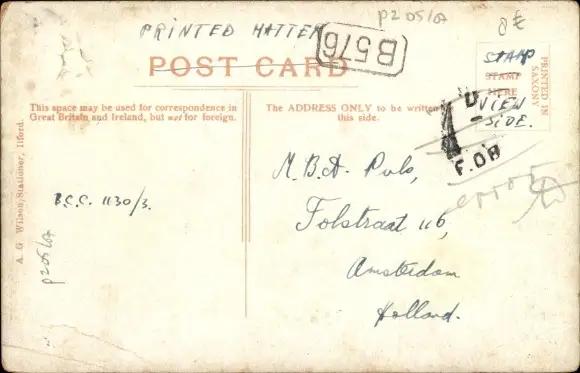 PRINTED MATTER
P205/07
8€
B576
POST CARD
STAMP
STAMP
HERE
VIEW
SIDE.
PRINTED IN
SAXONY
This space may be used for correspondence in
Great Britain and Ireland, but not for foreign.
The ADDRESS ONLY to be written
this side.
F.OB
M.B.A. Pulo,
Folstraat 116,
Amsterdam
Holland.
B.C.C. 1130/3.
P205/07
A. G. Wilson, Stationer, Ilford.